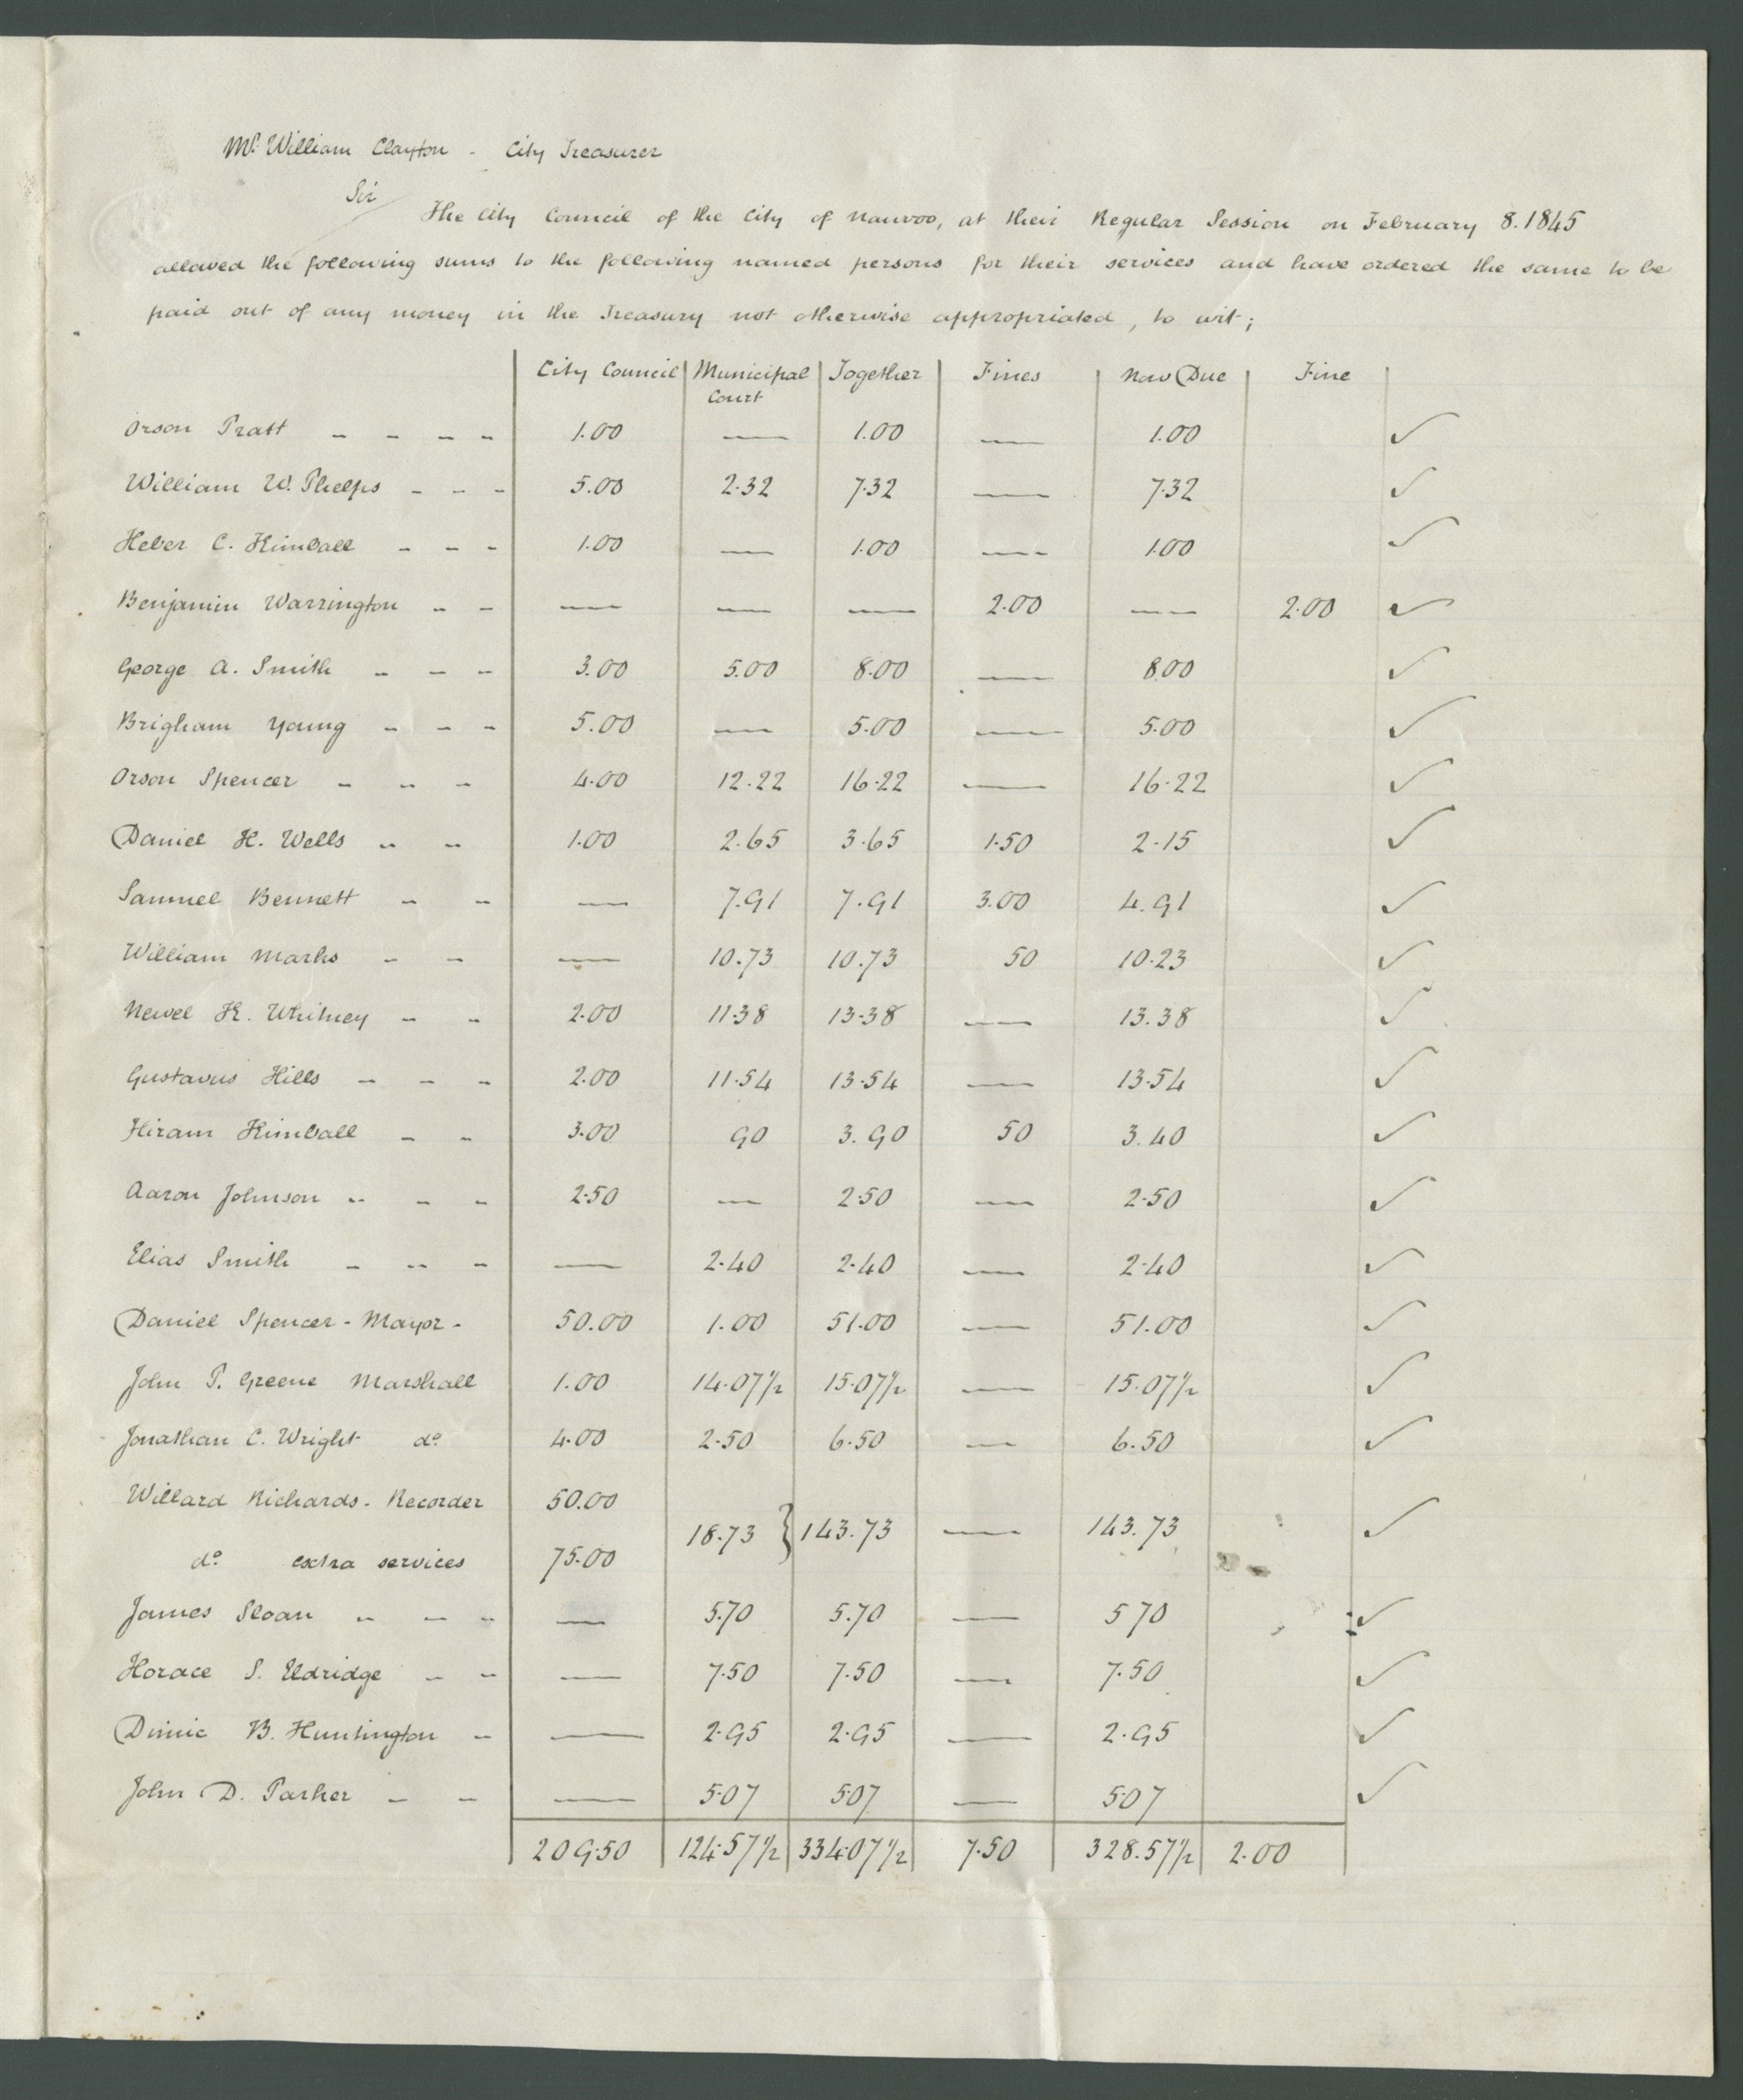 Mr. William Clayton - City Treasurer
Sir
The City Council of the City of Nauvoo, at their Regular Session on February 8. 1845
allowed the following sums to the following named persons for their services and have ordered the same to be
paid out of any money in the Treasury not otherwise appropriated, to wit;
City Council Municipal Court Together Fines Now Due Fine
Orson Pratt - - - - 1.00 — 1.00 — 1.00 ✓
William W. Phelps - - - 5.00 2.32 7.32 — 7.32 ✓
Heber C. Kimball - - - 1.00 — 1.00 — 1.00 ✓
Benjamin Warrington - - — — — 2.00 — 2.00 ✓
George A. Smith - - - 3.00 5.00 8.00 — 8.00 ✓
Brigham Young - - - 5.00 — 5.00 — 5.00 ✓
Orson Spencer - - - 4.00 12.22 16.22 — 16.22 ✓
Daniel H. Wells - - 1.00 2.65 3.65 1.50 2.15 ✓
Samuel Bennett - - — 7.91 7.91 3.00 4.91 ✓
William Marks - - — 10.73 10.73 50 10.23 ✓
Newel K. Whitney - - 2.00 11.38 13.38 — 13.38 ✓
Gustavus Hills - - - 2.00 11.54 13.54 — 13.54 ✓
Hiram Kimball - - 3.00 90 3.90 50 3.40 ✓
Aaron Johnson - - - 2.50 — 2.50 — 2.50 ✓
Elias Smith - - - — 2.40 2.40 — 2.40 ✓
Daniel Spencer - Mayor - 50.00 1.00 51.00 — 51.00 ✓
John P. Greene Marshall 1.00 14.07½ 15.07½ — 15.07½ ✓
Jonathan C. Wright do. 4.00 2.50 6.50 — 6.50 ✓
Willard Richards - Recorder 50.00
18.73 } 143.73 — 143.73 ✓
do. extra services 75.00
James Sloan - - - — 5.70 5.70 — 5 70 ✓
Horace S. Eldridge - - — 7.50 7.50 — 7.50 ✓
Dimic B. Huntington - — 2.95 2.95 — 2.95 ✓
John D. Parker - - — 5.07 5.07 — 5.07 ✓
209.50 124.57½ 334.07½ 7.50 328.57½ 2.00